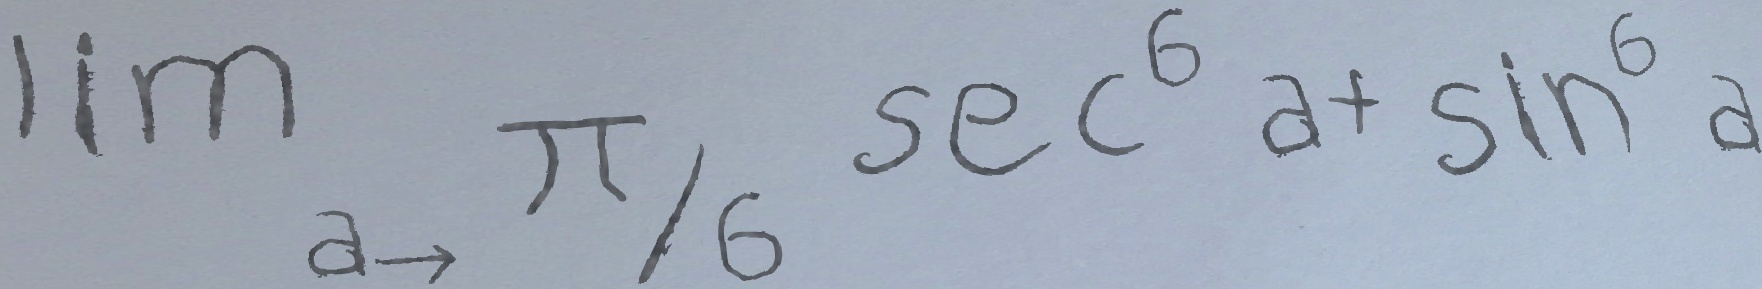 lim a→π/6 sec⁶ a + sin⁶ a